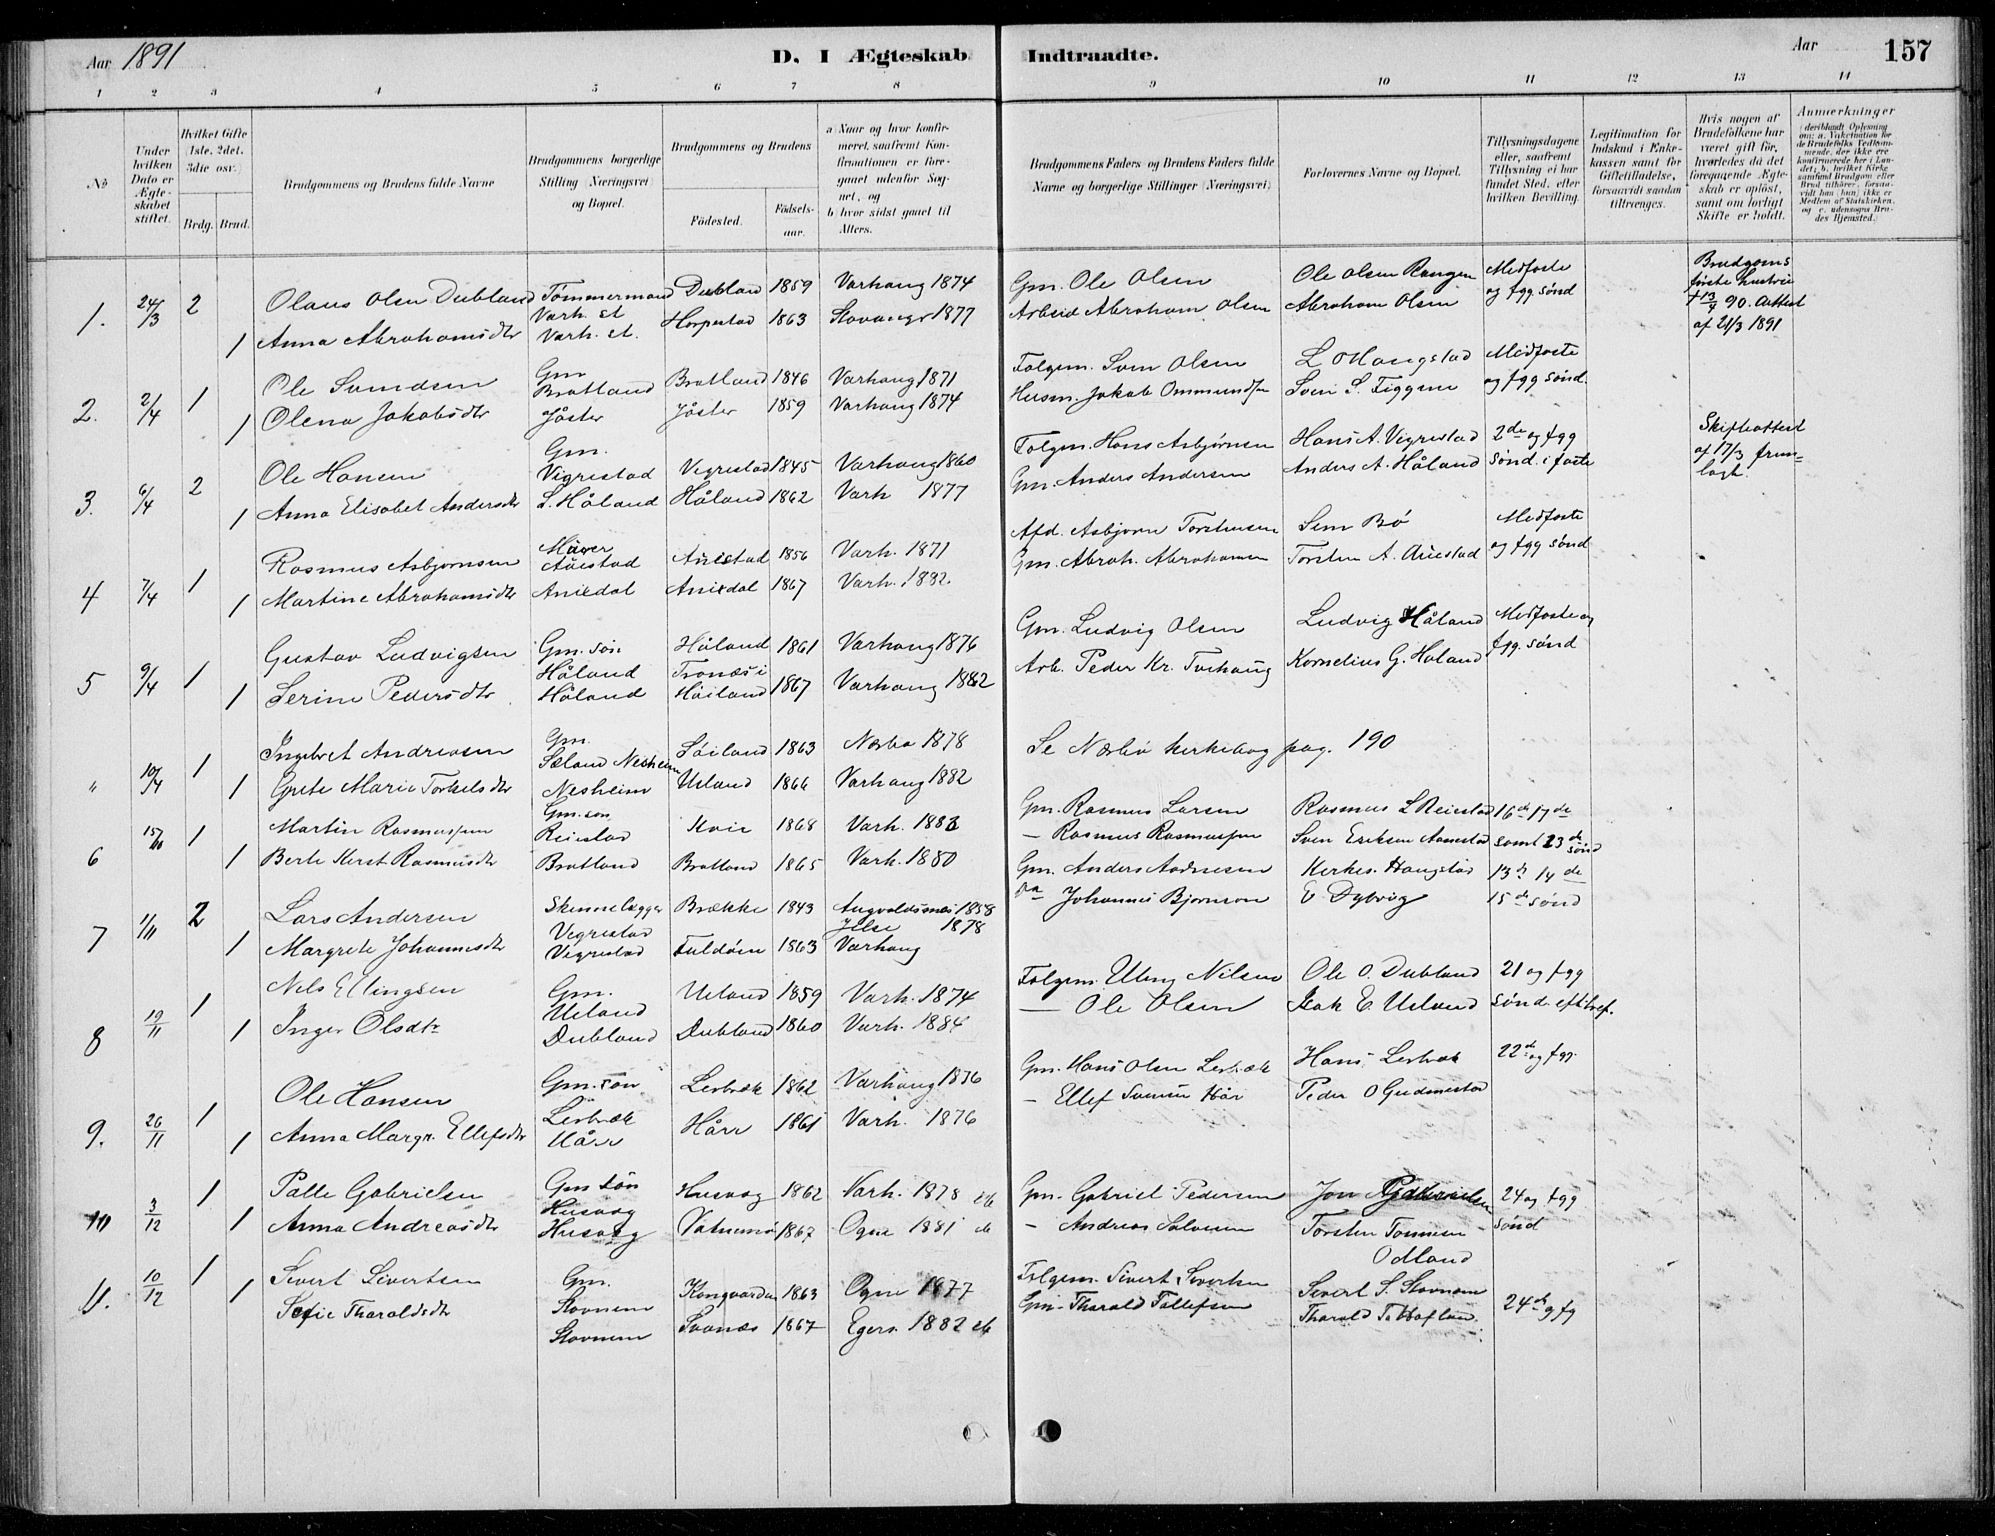 Aar 1891
D. I Ægteskab Indtraadte.
Aar 157
1 2 3 4 5 6 7 8 9 10 11 12 13 14
No
Under hvilken Dato er Ægteskabet stiftet.
Hvilket Gifte (1ste, 2det, 3die osv.)
Brdg. Brud.
Brudgommens og Brudens fulde Navne
Brudgommens borgerlige Stilling (Næringsvei) og Bopæl.
Brudgommens og Brudens
Fødested.
Fødselsaar.
a) Naar og hvor konfirmeret, saafremt Konfirmationen er foregaaet udenfor Sognet, og
b) hvor sidst gaaet til Alters.
Brudgommens Faders og Brudens Faders fulde Navne og borgerlige Stillinger (Næringsvei).
Forlovernes Navne og Bopæl.
Tillysningsdagene eller, saafremt Tillysning ei har fundet Sted, efter hvilken Bevilling.
Legitimation for Indskud i Enkekassen samt for Giftetilladelse, forsaavidt saadan tiltrænges.
Hvis nogen af Brudefolkene har været gift før, hvorledes da det foregaaende Ægteskab er opløst, samt om lovligt Skifte er holdt.
Anmærkninger
(deriblandt Oplysning om: a. Vaksination for de Brudefolks Vedkommende, der ikke ere konfirmerede her i Landet; b. hvilket Kirkesamfund Brudgom eller Brud tilhører, forsaavidt han (hun) ikke er Medlem af Statskirken, og c. udensogns Brudes Hjemsted.)
1. 24/3 2 Olaus Olsen Dubland Tømmermand Varh. St Dubland 1859 Varhaug 1874 Gm. Ole Olsen Ole Olsen Rangen Midfaste og fgg. sønd Brudgoms første hustru † 13/4 90. Attest af 21/3 1891
1 Anna Abrahamsdtr Varh. St. Horpestad 1863 Stavanger 1877 Arbeid Abraham Olsen Abraham Olsen
2. 2/4 1 Ole Svendsen Gm Bratland Bratland 1846 Varhaug 1871 Folgem. Sven Olsen L Haugstad Midfaste og fgg sønd.
1 Olena Jakobsdtr Jåster Jåster 1859 Varhaug 1874 Husm. Jakob Ommundsen Sven S. Tiggen
3. 6/4 2 Ole Hansen Gm. Vigrestad Vigrestad 1845 Varhaug 1860 Folgem. Hans Asbjørnsen Hans A. Vigrestad 2de og fgg sønd. i faste Skifteattest af 17/3 fremlagt.
1 Anna Elisabet Andersdtr L. Håland Håland 1862 Varh 1877 Gm. Anders Andersen Anders A. Håland
4 7/4 1 Rasmus Asbjørnsen Murer Auestad Auestad 1856 Varh. 1871 Afd. Asbjørn Torstensen Sem Bø Midfaste og fgg sønd
1 Martine Abrahamsdtr Anisdal Anisdal 1867 Varh. 1882. Gm. Abrah. Abrahamsen Torsten A. Auestad
5 9/4 1 Gustav Ludvigsen Gm. søn Håland Håland 1861 Varhaug 1876 Gm. Ludvig Olsen Ludvig Håland Midfaste og fgg. sønd
1 Serine Pedersdtr Håland Håiland 1867 Varhaug 1882 Arb. Peder Kr. Tuehaug Kornelius G. Håland
" 10/4 1 Ingebret Andreasen Gm. Sæland Nesheim Søiland 1863 Nærbø 1878 Se Nærbø kirkebog pag. 190
1 Grete Marie Torkelsdtr Nesheim Ueland 1866 Varhaug 1882
6 15/10 1 Martin Rasmussen Gm. søn Reiestad Kvie 1868 Varh. 1883 Gm. Rasmus Larsen Rasmus L Reiestad 16de 17de samt 23de sønd
1 Berte Kirst. Rasmusdtr Bratland Bratland 1865 Varh. 1880 — Rasmus Rasmussen Sven Eriksen Auestad
7 1/11 2 Lars Andersen Skinnelægger Vigrestad Brække 1843 Augvaldsnes 1858 Gm. Anders Andersen Kirkes. Haugstad 13de 14de 15de sønd
1 Margrete Johannesdtr Vigrestad Fuldøen 1863 1878 Varhaug Johannes Bjørnson E Dybvig
8 19/11 1 Nils Ellingsen Gm. Ueland Ueland 1859 Varh. 1874 Folgem. Elling Nilsen Ole O. Dubland 21 og fgg sønd eft tref.
1 Inger Olsdtr Dubland Dubland 1860 Varh. 1884 — Ole Olsen Isak E. Ueland
9. 26/11 1 Ole Hansen Gm. søn Lerbræk Lerbræk 1862 Varhaug 1876 Gm. Hans Olsen Lerbræk Hans Lerbræk 22de og fgg.
1 Anna Margr. Ellefsdtr Hårr Hårr 1861 Varh. 1876 — Ellef Hår Peder O Gudmestad
10 3/12 1 Palle Gabrielsen Gm søn Husvog Husvog 1862 Varh. 1878 Gm. Gabriel Pedersen Jon Gabrielsen 24 og fgg sønd
1 Anna Andreasdtr Husvog 1867 Ogne 1881 — Andreas Salvesen Torsten Tønnesen Odland
11. 10/12 1 Sivert Sivertsen Gm. Stovnem Kongvarden 1863 Ogne 1877 Folgem. Sivert Sivertsen Sivert S. Stovnem 24de og fg
1 Sofie Tharaldsdtr Stovnem Svanes 1867 Egers. 1882 Gm. Tharald Tollefsen Tharald T. Hofland.